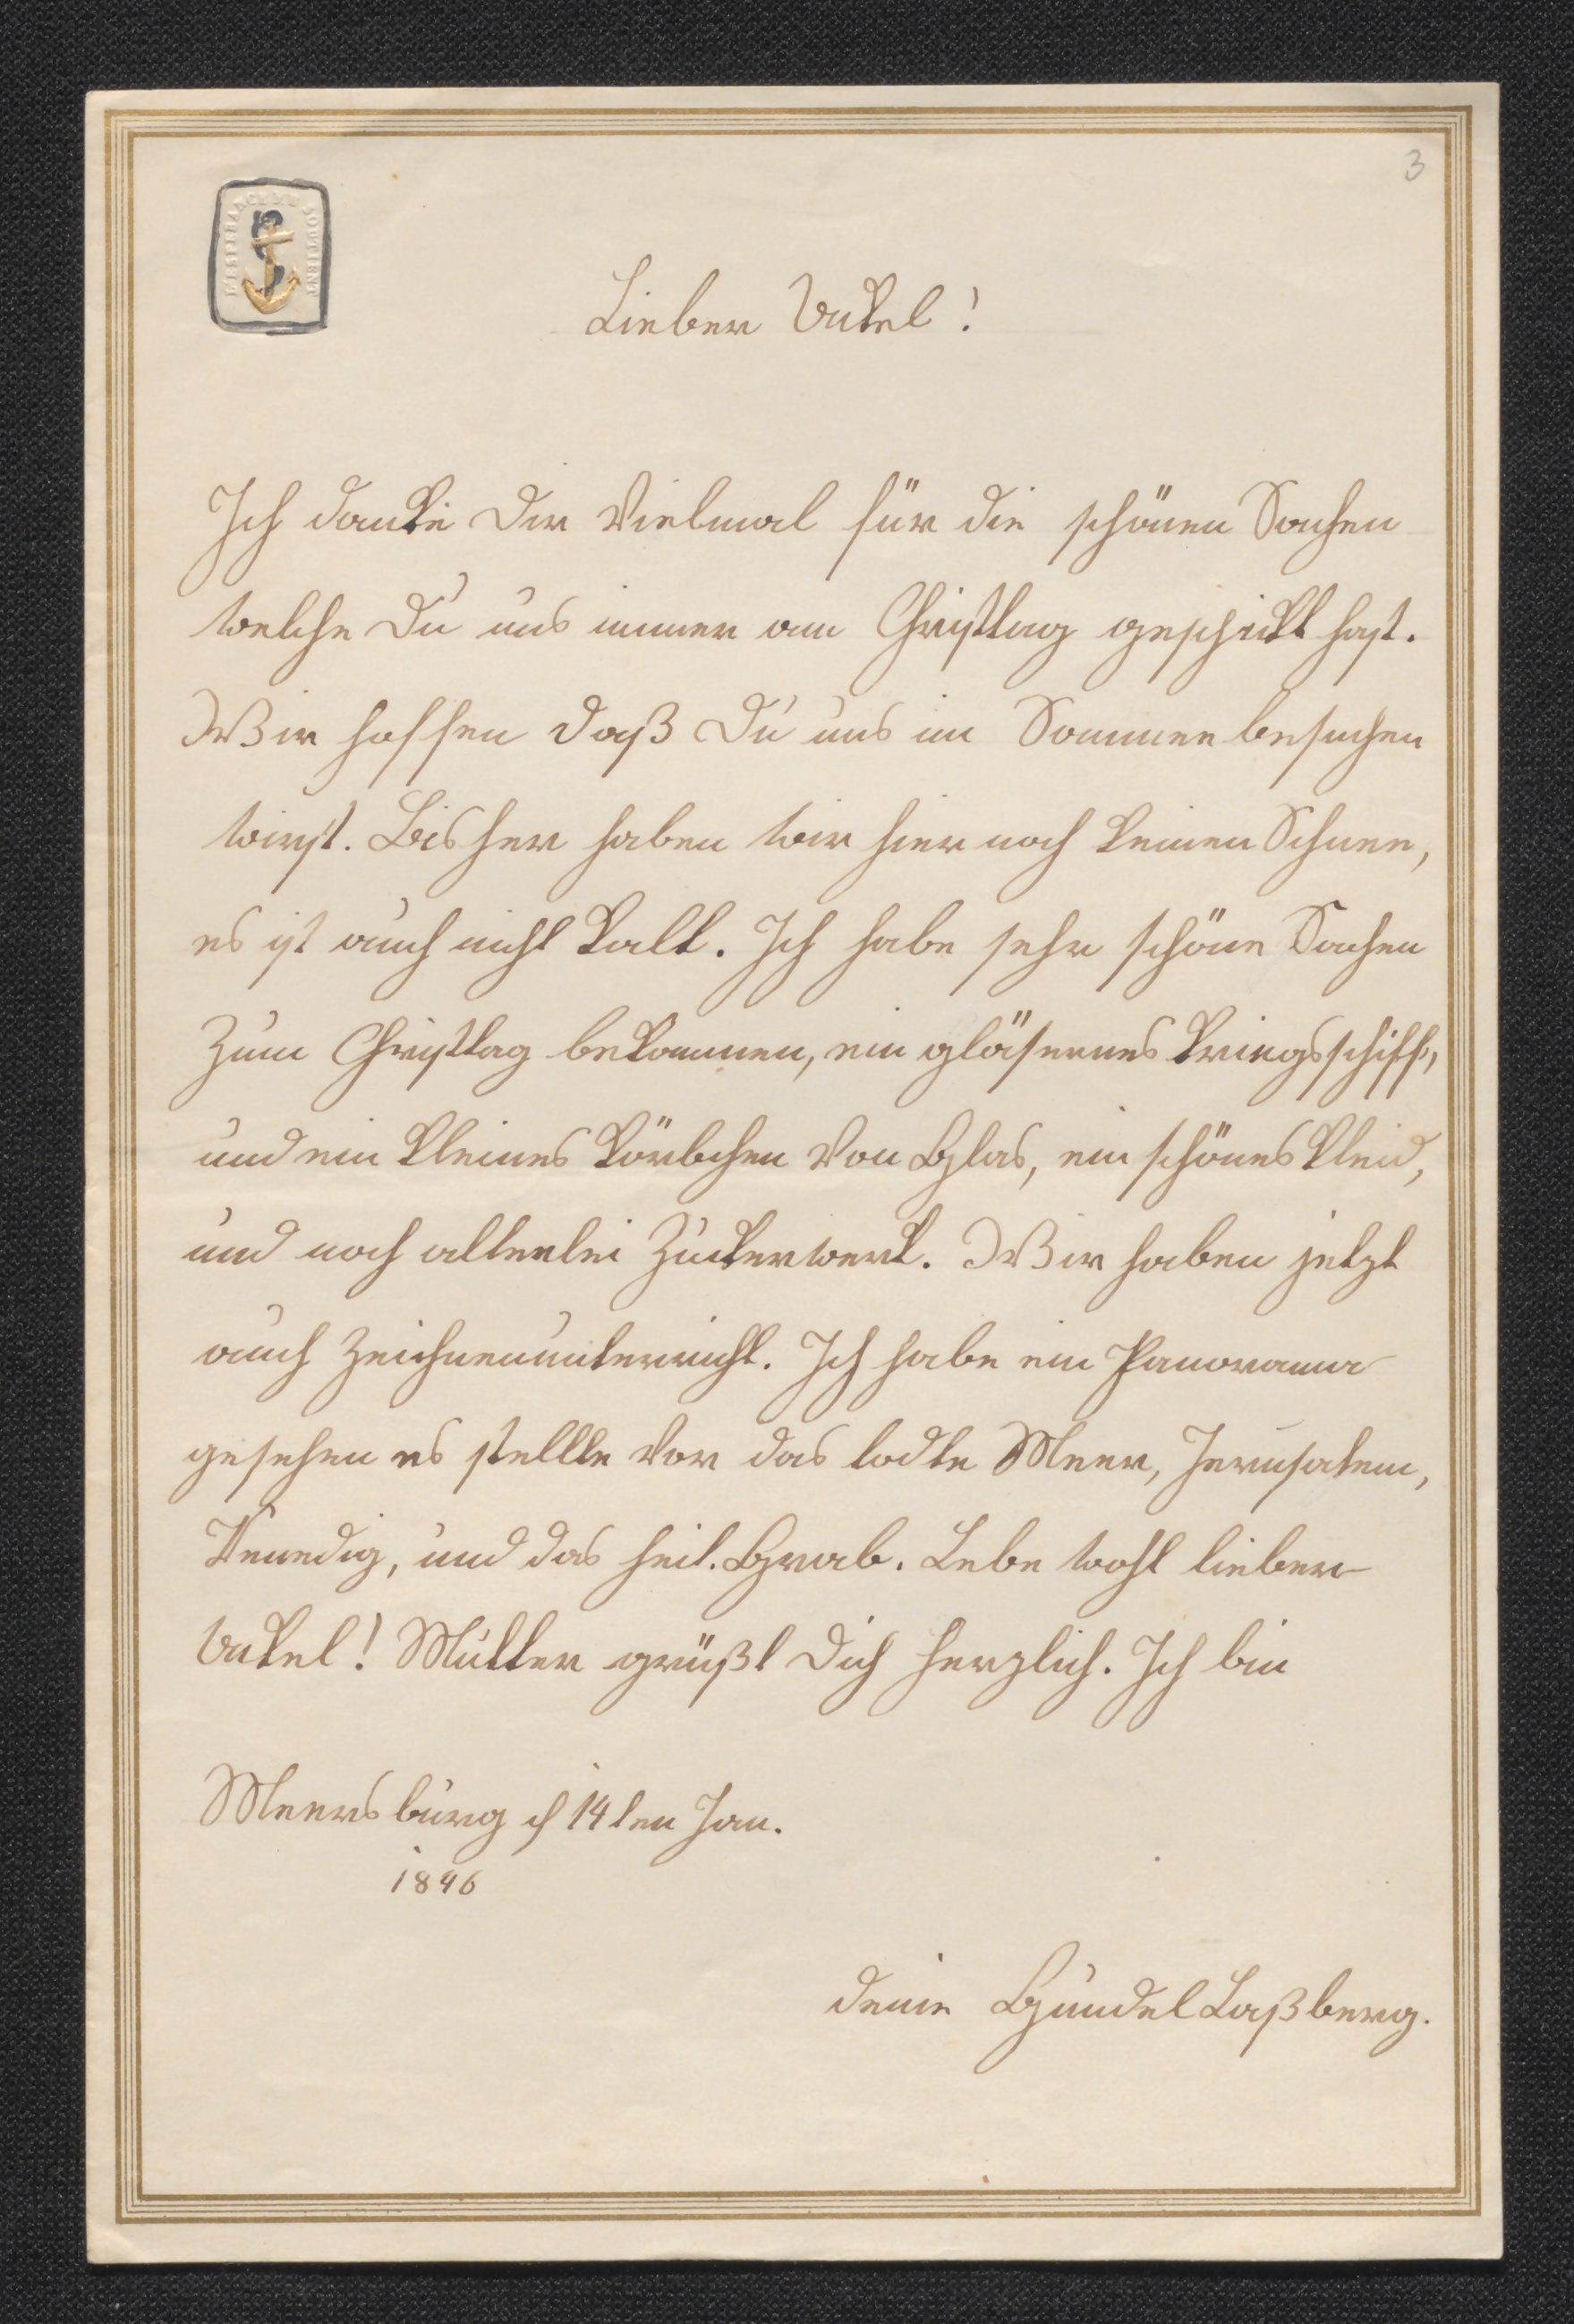 3
L'ESPERANCE ME SOUTIENT
Lieber Onkel!
Ich danke Dir Vielmal für die schönen Sachen
welche Du uns immer am Christtag geschickt hast.
Wir hoffen daß Du uns im Sommer besuchen
wirst. Bisher haben wir hier noch keinen Schnee,
es ist auch nicht kalt. Ich habe sehr schöne Sachen
zum Christtag bekommen, ein gläsernes Kriegsschiff,
und ein kleines Körbchen von Glas, ein schönes Kleid,
und noch allerlei Zuckerwerk. Wir haben jetzt
auch Zeichnenunterricht. Ich habe ein Panorama
gesehen es stellte vor das todte Meer, Jerusalem,
Venedig, und das heil. Grab. Lebe wohl lieber
Onkel! Mutter grüßt Dich herzlich. Ich bin
Meersburg d 14ten Jan.
1846
deine Gundel Laßberg.